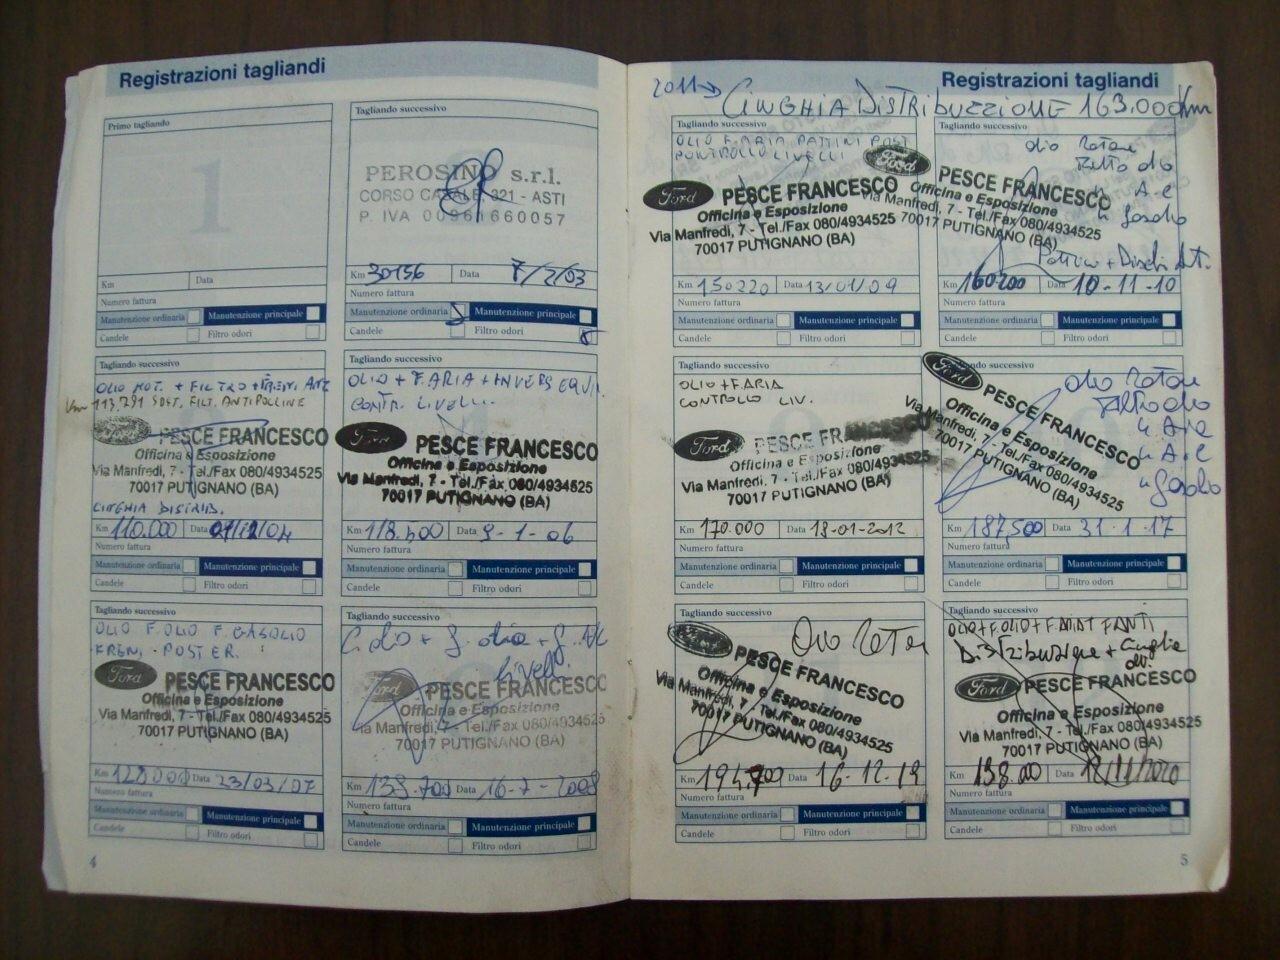 Registrazioni tagliandi
Primo tagliando
1
Km
Data
Numero fattura
Manutenzione ordinaria
Manutenzione principale
Candele
Filtro odori
Tagliando successivo
PEROSINO s.r.l.
CORSO CASALE 321 - ASTI
P. IVA 00961660057
Km 30156 Data 7/2/03
Numero fattura
Manutenzione ordinaria
Manutenzione principale
Candele
Filtro odori
Tagliando successivo
OLIO MOT. + FILTRO +
113.791 SOST. FILT. ANTIPOLLINE
PESCE FRANCESCO
Officina e Esposizione
Via Manfredi, 7 - Tel./Fax 080/4934525
70017 PUTIGNANO (BA)
DISTRIB.
Km 110.000 Data
Numero fattura
Manutenzione ordinaria
Manutenzione principale
Candele
Filtro odori
Tagliando successivo
OLIO + F.ARIA +
CONTR. LIVELLI.
Ford
PESCE FRANCESCO
Officina e Esposizione
Via Manfredi, 7 - Tel./Fax 080/4934525
70017 PUTIGNANO (BA)
Km 118.500 Data 9-1-06
Numero fattura
Manutenzione ordinaria
Manutenzione principale
Candele
Filtro odori
Tagliando successivo
OLIO F.OLIO F. GASOLIO
FRENI - POSTER.
Ford
PESCE FRANCESCO
Officina e Esposizione
Via Manfredi, 7 - Tel./Fax 080/4934525
70017 PUTIGNANO (BA)
Km 128000 Data 23/03/07
Numero fattura
Manutenzione ordinaria
Manutenzione principale
Candele
Filtro odori
Tagliando successivo
livelli
Ford
PESCE FRANCESCO
Officina e Esposizione
Via Manfredi, 7 - Tel./Fax 080/4934525
70017 PUTIGNANO (BA)
Km 138.700 Data 16-7-2008
Numero fattura
Manutenzione ordinaria
Manutenzione principale
Candele
Filtro odori
4
Registrazioni tagliandi
2011 → CINGHIA DISTRIBUZZIONE 163.000 Km
Tagliando successivo
OLIO F.ARIA PATTINI POST
CONTROLLO LIVELLI
Ford
PESCE FRANCESCO
Officina e Esposizione
Via Manfredi, 7 - Tel./Fax 080/4934525
70017 PUTIGNANO (BA)
Km 150220 Data 13/01/09
Numero fattura
Manutenzione ordinaria
Manutenzione principale
Candele
Filtro odori
Tagliando successivo
olio
olio
Ford
PESCE FRANCESCO
Officina e Esposizione
Via Manfredi, 7 - Tel./Fax 080/4934525
70017 PUTIGNANO (BA)
Km 160200 Data 10-11-10
Numero fattura
Manutenzione ordinaria
Manutenzione principale
Candele
Filtro odori
Tagliando successivo
OLIO + F.ARIA
CONTROLLO LIV.
Ford
PESCE FRANCESCO
Officina e Esposizione
Via Manfredi, 7 - Tel./Fax 080/4934525
70017 PUTIGNANO (BA)
Km 170.000 Data 18-01-2012
Numero fattura
Manutenzione ordinaria
Manutenzione principale
Candele
Filtro odori
Tagliando successivo
olio
olio
Ford
PESCE FRANCESCO
Officina e Esposizione
Via Manfredi, 7 - Tel./Fax 080/4934525
70017 PUTIGNANO (BA)
Km 187500 Data 31-1-17
Numero fattura
Manutenzione ordinaria
Manutenzione principale
Candele
Filtro odori
Tagliando successivo
Olio
Ford
PESCE FRANCESCO
Officina e Esposizione
Via Manfredi, 7 - Tel./Fax 080/4934525
70017 PUTIGNANO (BA)
Km 194.700 Data 16-12-19
Numero fattura
Manutenzione ordinaria
Manutenzione principale
Candele
Filtro odori
Tagliando successivo
OLIO + F.OLIO +
Distribuzione + Cinghia
Ford
PESCE FRANCESCO
Officina e Esposizione
Via Manfredi, 7 - Tel./Fax 080/4934525
70017 PUTIGNANO (BA)
Km Data
Numero fattura
Manutenzione ordinaria
Manutenzione principale
Candele
Filtro odori
5